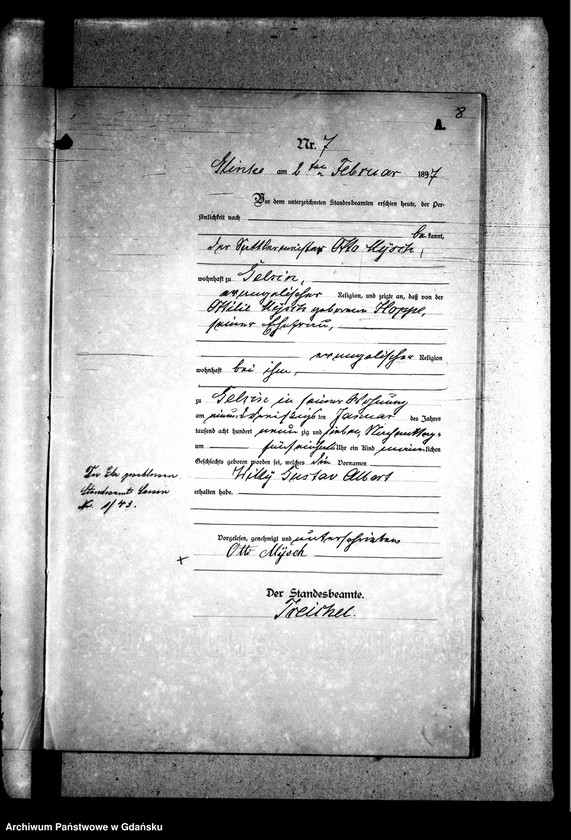 8
A.
Nr. 7
Glinke am 2 ten Februar 1897
Vor dem unterzeichneten Standesbeamten erschien heute, der Per-
sönlichkeit nach
bekannt,
der Sattlermeister Otto Mÿsch,
wohnhaft zu
evangelischer Religion, und zeigte an, daß von der
geborenen Hoppe,
seiner Ehefrau,
evangelischer Religion
wohnhaft bei ihm,
zu in seiner Wohnung
am einunddreißigsten Januar des Jahres
tausend acht hundert neunzig und sieben, Nachmittags
um Uhr ein Kind männlichen
Geschlechts geboren worden sei, welches die Vornamen
Willÿ Gustav Albert
erhalten habe.
Die Ehe geschlossen
Standesamt
Nr. 1/43.
Vorgelesen, genehmigt und unterschrieben
Otto Mÿsch
Der Standesbeamte.
Treichel.
Archiwum Państwowe w Gdańsku